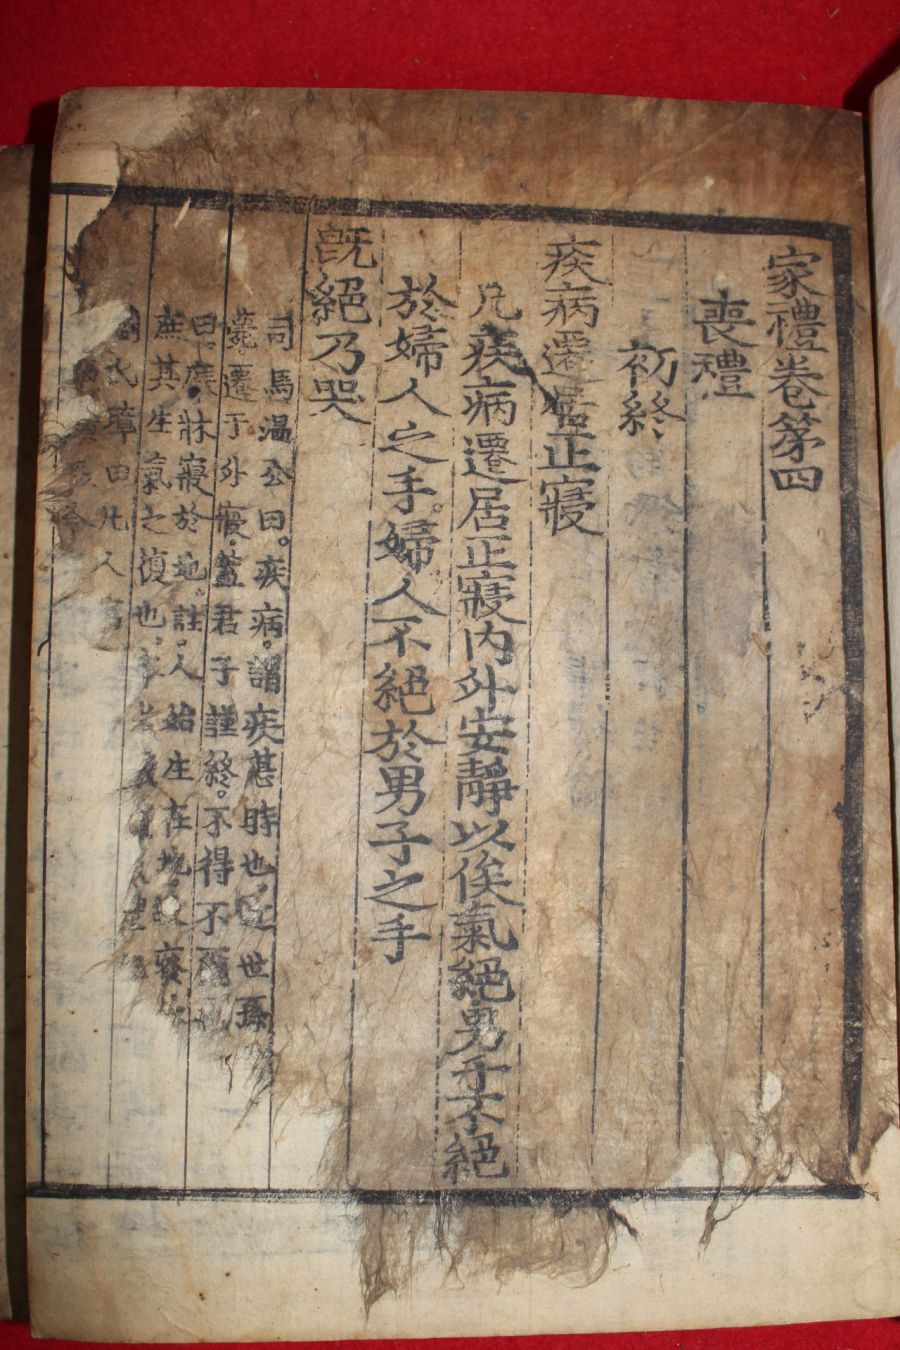 家禮卷第四
喪禮
初終
疾病遷居正寢
凡疾病遷居正寢内外安靜以俟氣絕男子不絕
於婦人之手。婦人不絕於男子之手
旣絕乃哭
司馬溫公曰。疾病。謂疾甚時也。近世孫
遷于外寢。蓋君子謹終。不得不爾
曰。廢牀寢於地。註。人始生在地。故
庶其生氣之復也。
氏璋曰凡人